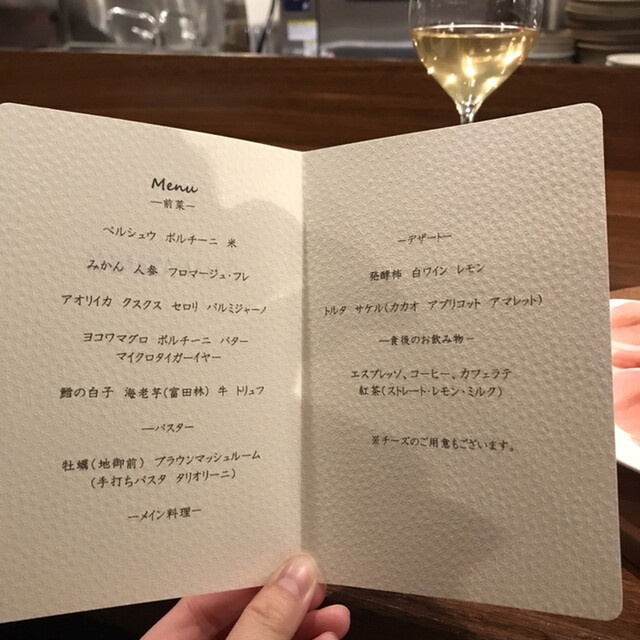 Menu
―前菜―
ペルシュウ ポルチーニ 米
みかん 人参 フロマージュ・フレ
アオリイカ クスクス セロリ パルミジャーノ
ヨコワマグロ ポルチーニ バター
マイクロタイガーイャー
鱈の白子 海老芋(富田林) 牛 トリュフ
―パスター
牡蠣(地御前) ブラウンマッシュルーム
(手打ちパスタ タリオリーニ)
―メイン料理―
―デザート―
発酵柿 白ワイン レモン
トルタ サケル(カカオ アプリコット アマレット)
―食後のお飲み物―
エスプレッソ、コーヒー、カフェラテ
紅茶(ストレート・レモン・ミルク)
※チーズのご用意もございます。